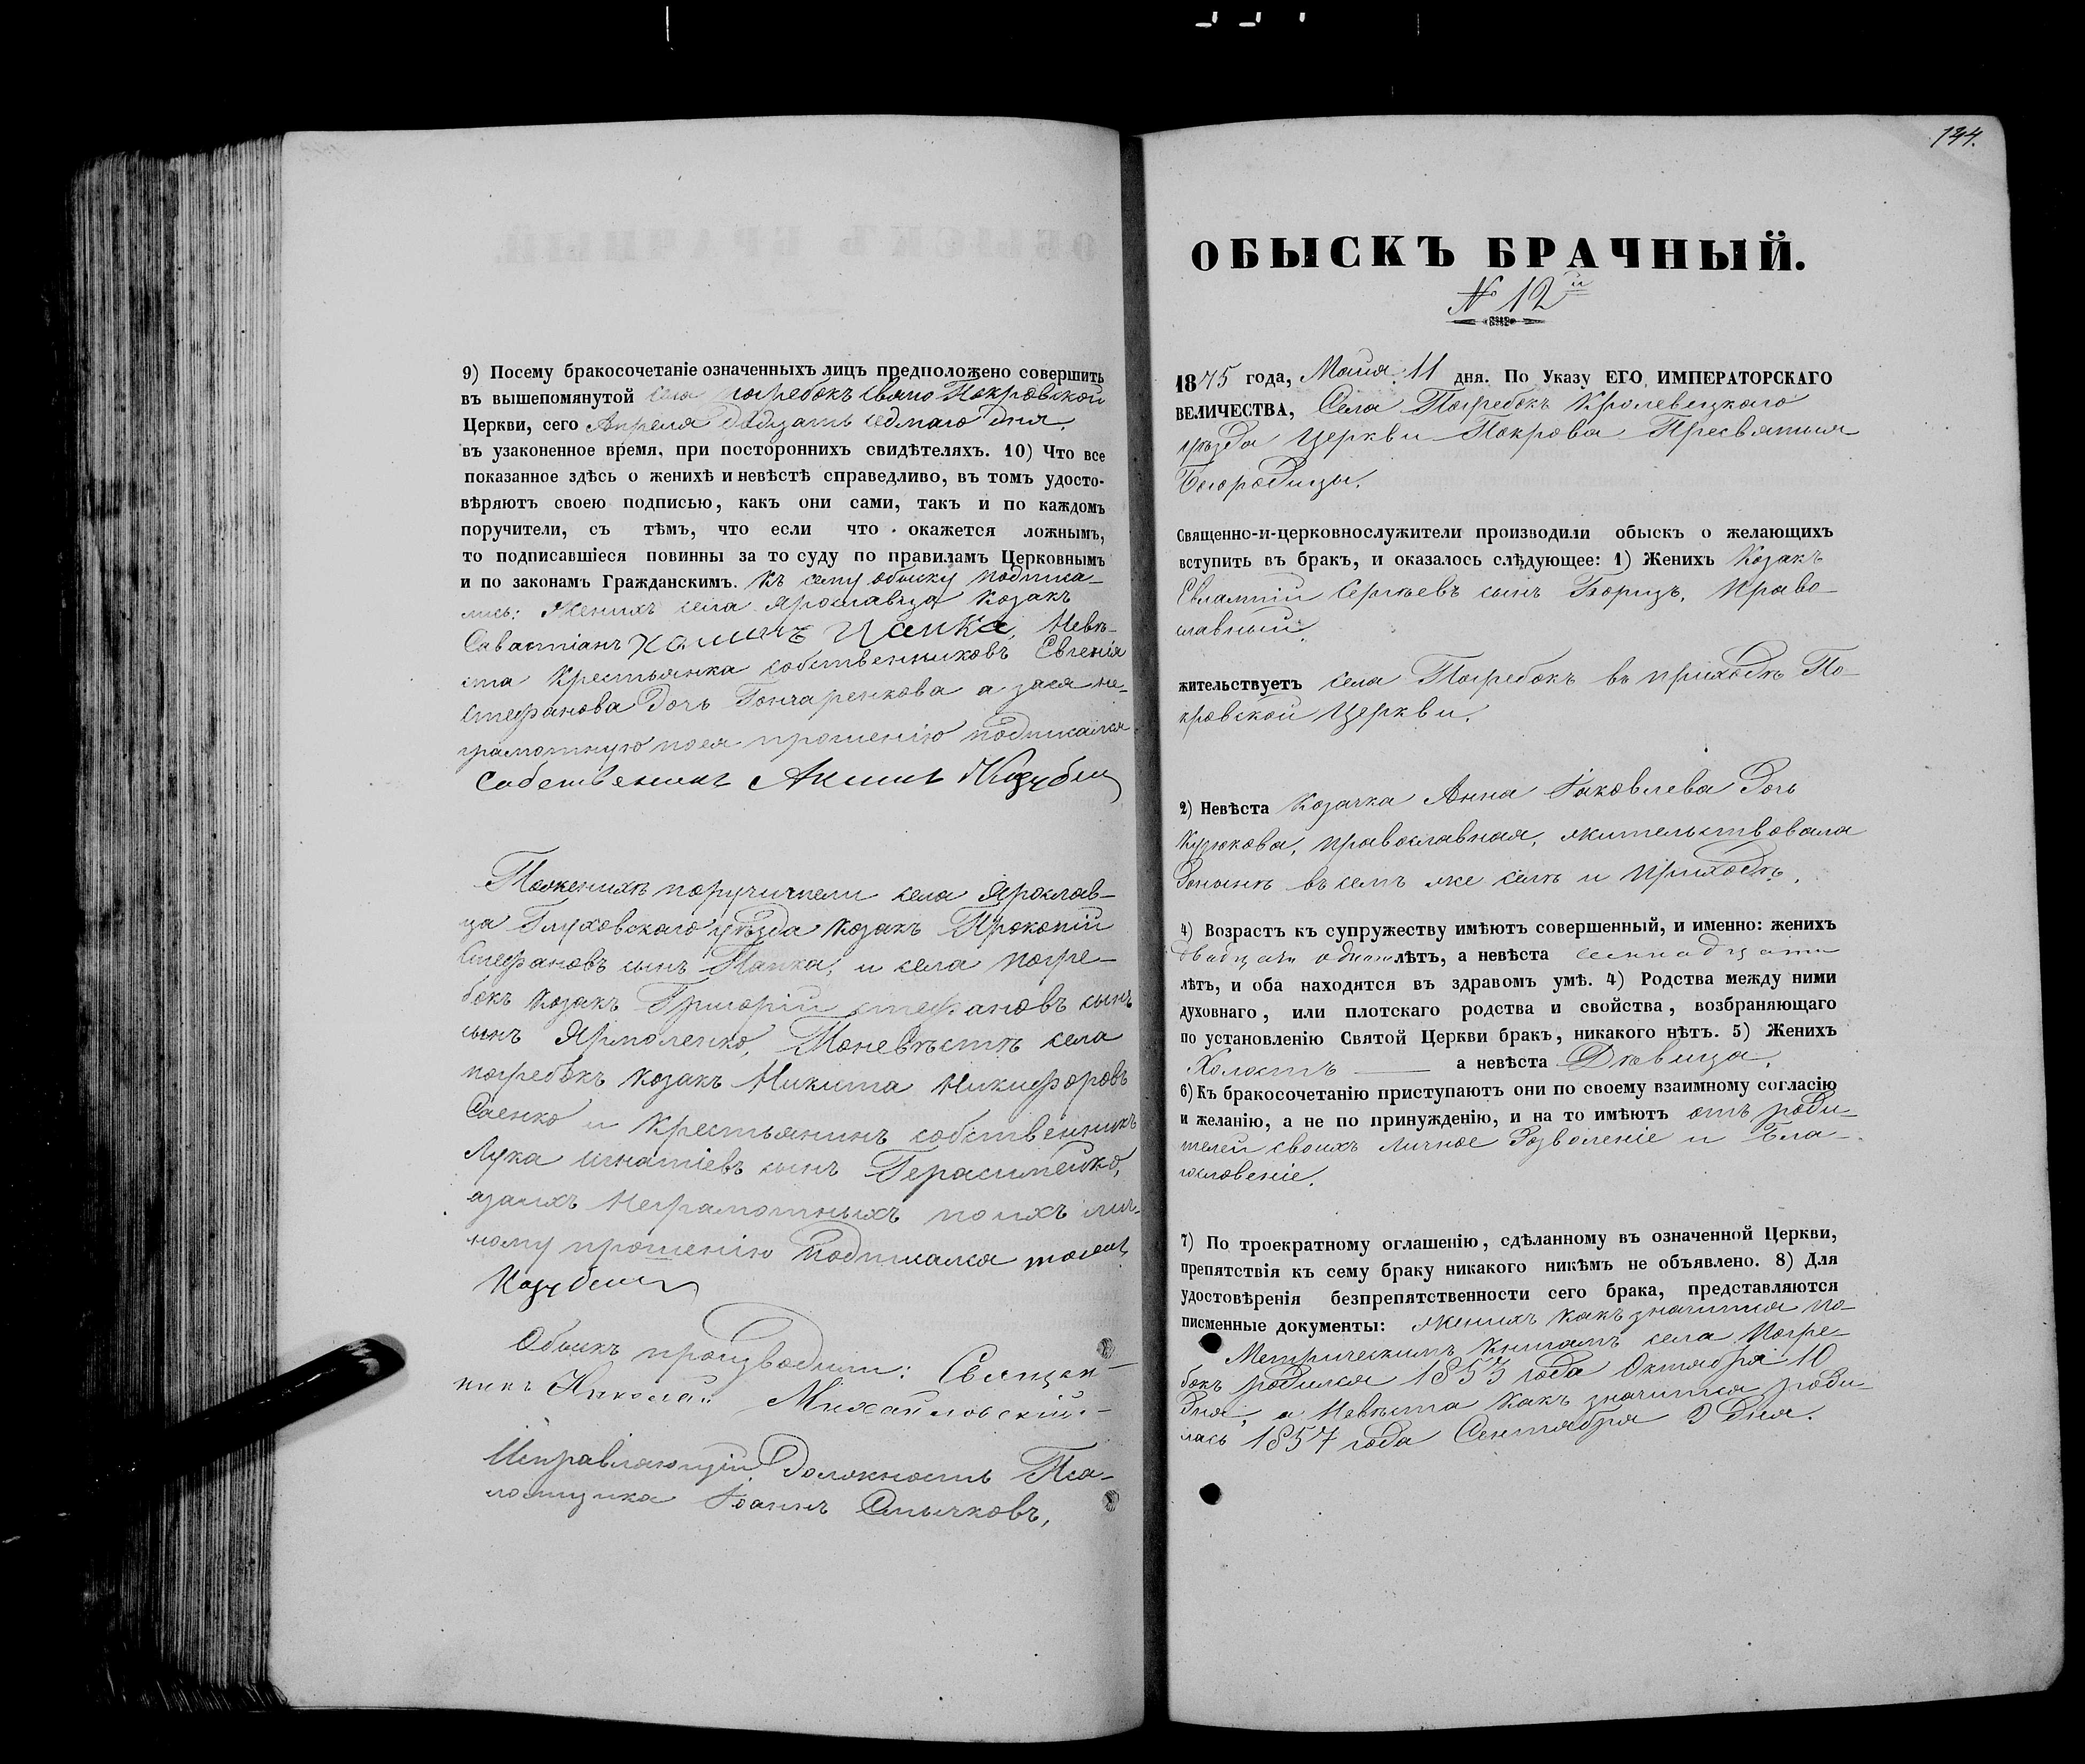 9) Посему бракосочетаніе означенныхъ лицъ предположено совершить
въ вышепомянутой села погребокъ свято Покровской
Церкви, сего Апреля двадцать седмаго дня.
въ узаконенное время, при постороннихъ свидѣтеляхъ. 10) Что все
показанное здѣсь о женихѣ и невѣстѣ справедливо, въ томъ удосто-
вѣряютъ своею подписью, какъ они сами, такъ и по каждомъ
поручители, съ тѣмъ, что если что окажется ложнымъ,
то подписавшіеся повинны за то суду по правиламъ Церковнымъ
и по законамъ Гражданскимъ. Къ сему обыску подписа-
лись: Женихъ села Ярославца Козакъ
Савастіанъ
ста Крестьянка собственниковъ Евгенія
Стефанова дочь Гончаренкова а за нея не-
грамотную по ея прошенію подписался
собственникъ Козубъ
По женихѣ поручители села Ярослав-
ца Глуховскаго уѣзда Козакъ Прокопій
Стефановъ сынъ Папка, и села погре-
бокъ Козакъ Григорій Стефановъ сынъ
сынъ Ярмоленко, По невѣстѣ села
погребокъ Козакъ Никита Никифоровъ
Саенко и Крестьянинъ собственникъ
Лука Игнатіевъ сынъ Герасименко,
а за ихъ неграмотныхъ по ихъ лич-
ному прошенію подписался
Обыскъ производили: Священ-
никъ Николай Михайловскій
Исправляющій должность Пса-
ломщика Іоаннъ Смычковъ,
134.
ОБЫСКЪ БРАЧНЫЙ.
№ 12й
1875 года, Маия 11 дня. По Указу ЕГО ИМПЕРАТОРСКАГО
ВЕЛИЧЕСТВА, Села Погребокъ Кролевецкаго
уѣзда Церкви Покрова Пресвятыя
Богородицы.
Священно-и-церковнослужители производили обыскъ о желающихъ
вступить въ бракъ, и оказалось слѣдующее: 1) Женихъ Козакъ
Евлампій Сергѣевъ сынъ Борицъ, Право-
славный.
жительствуетъ села Погребокъ въ приходѣ По-
кровской Церкви.
2) Невѣста Козачка Анна Іаковлева дочь
православная, жительствовала
донынѣ въ семъ же селѣ и приходѣ.
4) Возрастъ къ супружеству имѣютъ совершенный, и именно: женихъ
двадцати одного лѣтъ, а невѣста семнадцати
лѣтъ, и оба находятся въ здравомъ умѣ. 4) Родства между ними
духовнаго, или плотскаго родства и свойства, возбраняющаго
по установленію Святой Церкви бракъ, никакого нѣтъ. 5) Женихъ
Холостъ — а невѣста Дѣвица.
6) Къ бракосочетанію приступаютъ они по своему взаимному согласію
и желанію, а не по принужденію, и на то имѣютъ отъ роди-
телей своихъ личное дозволеніе и Бла-
гословеніе.
7) По троекратному оглашенію, сдѣланному въ означенной Церкви,
препятствія къ сему браку никакого никѣмъ не объявлено. 8) Для
удостовѣренія безпрепятственности сего брака, представляются
писменные документы: Женихъ какъ значится по
Метрическимъ Книгамъ села Погре-
бокъ родился 1853 года Октября 10
дня, а Невѣста какъ значится роди-
лась 1857 года Сентября 9 дня.